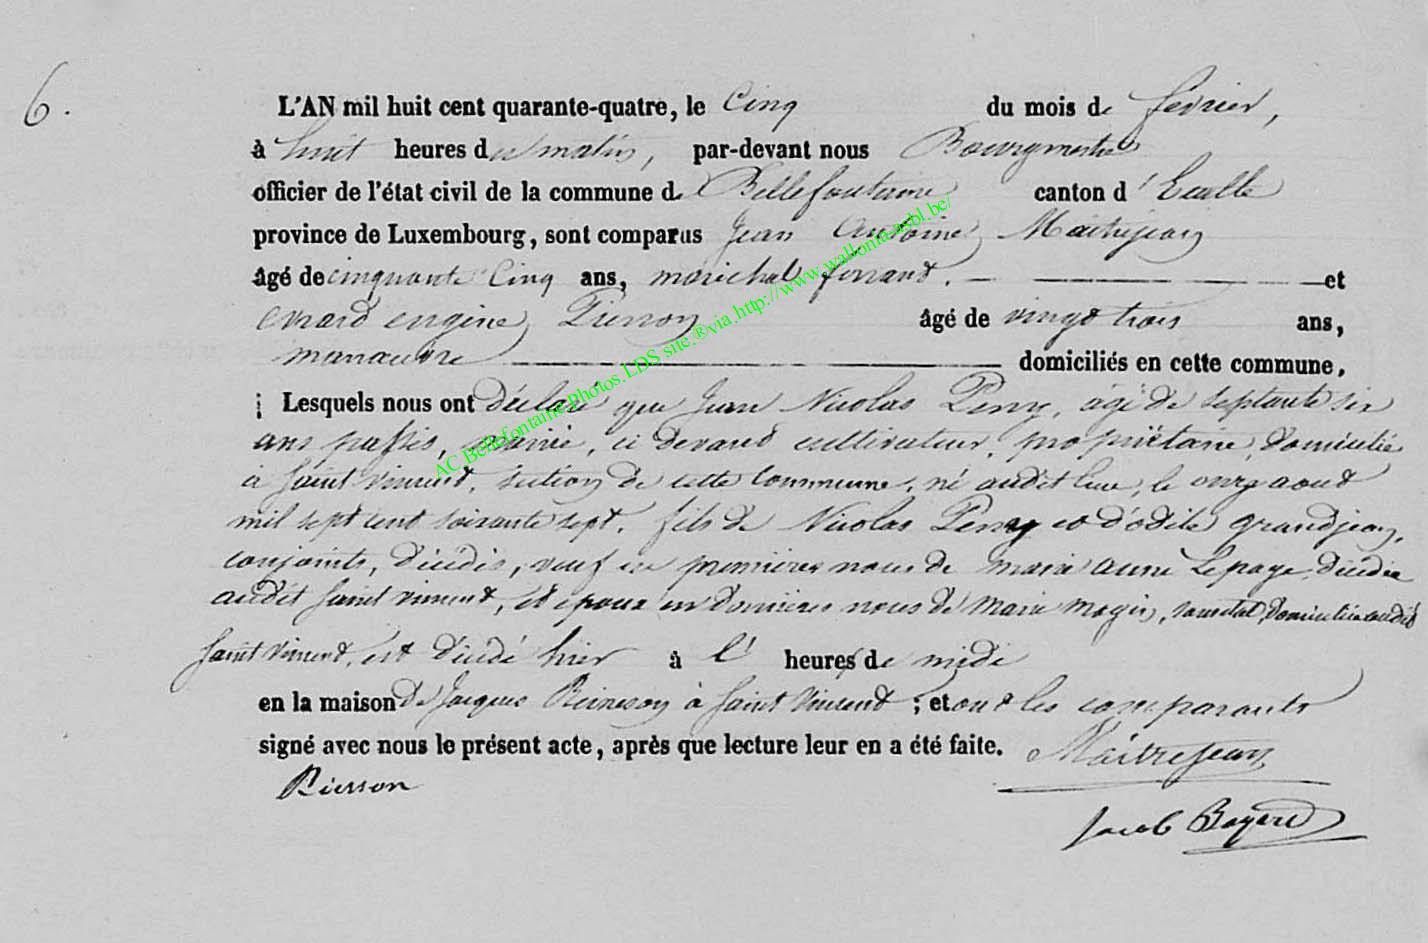 6.
L'AN mil huit cent quarante-quatre, le Cinq du mois de fevrier,
à huit heures du matin, par-devant nous Bourgmestre
officier de l'état civil de la commune de Bellefontaine canton d'Etalle
province de Luxembourg, sont comparus Jean Antoine Maitrejean
âgé de cinquante Cinq ans, marichal ferrant. et
evrard eugène Pierson âgé de vingt trois ans,
manœuvre domiciliés en cette commune,
Lesquels nous ont déclaré que Jean Nicolas Perry, âgé de septante six
ans passés, ci devant cultivateur, propriétaire, domicilié
à Saint Vincent, section de cette Commune, né audit lieu, le onze aout
mil sept cent soixante sept, fils de Nicolas Perry et d'odile grandjean,
conjoints, décédés, veuf en premières noces de marie anne Lepage, décédée
audit Saint vincent, et epoux en dernières noces de marie magin, sans état, domiciliée audit
Saint Vincent, est décédé hier à l' heures de midi
en la maison de Jacques à Saint Vincent ; et ont les comparants
signé avec nous le présent acte, après que lecture leur en a été faite. Maitrejean
Pierson
Jacob Bayard
AC Bellefontaine.Photos.LDS site.®via.http://www.wallonia.asbl.be/